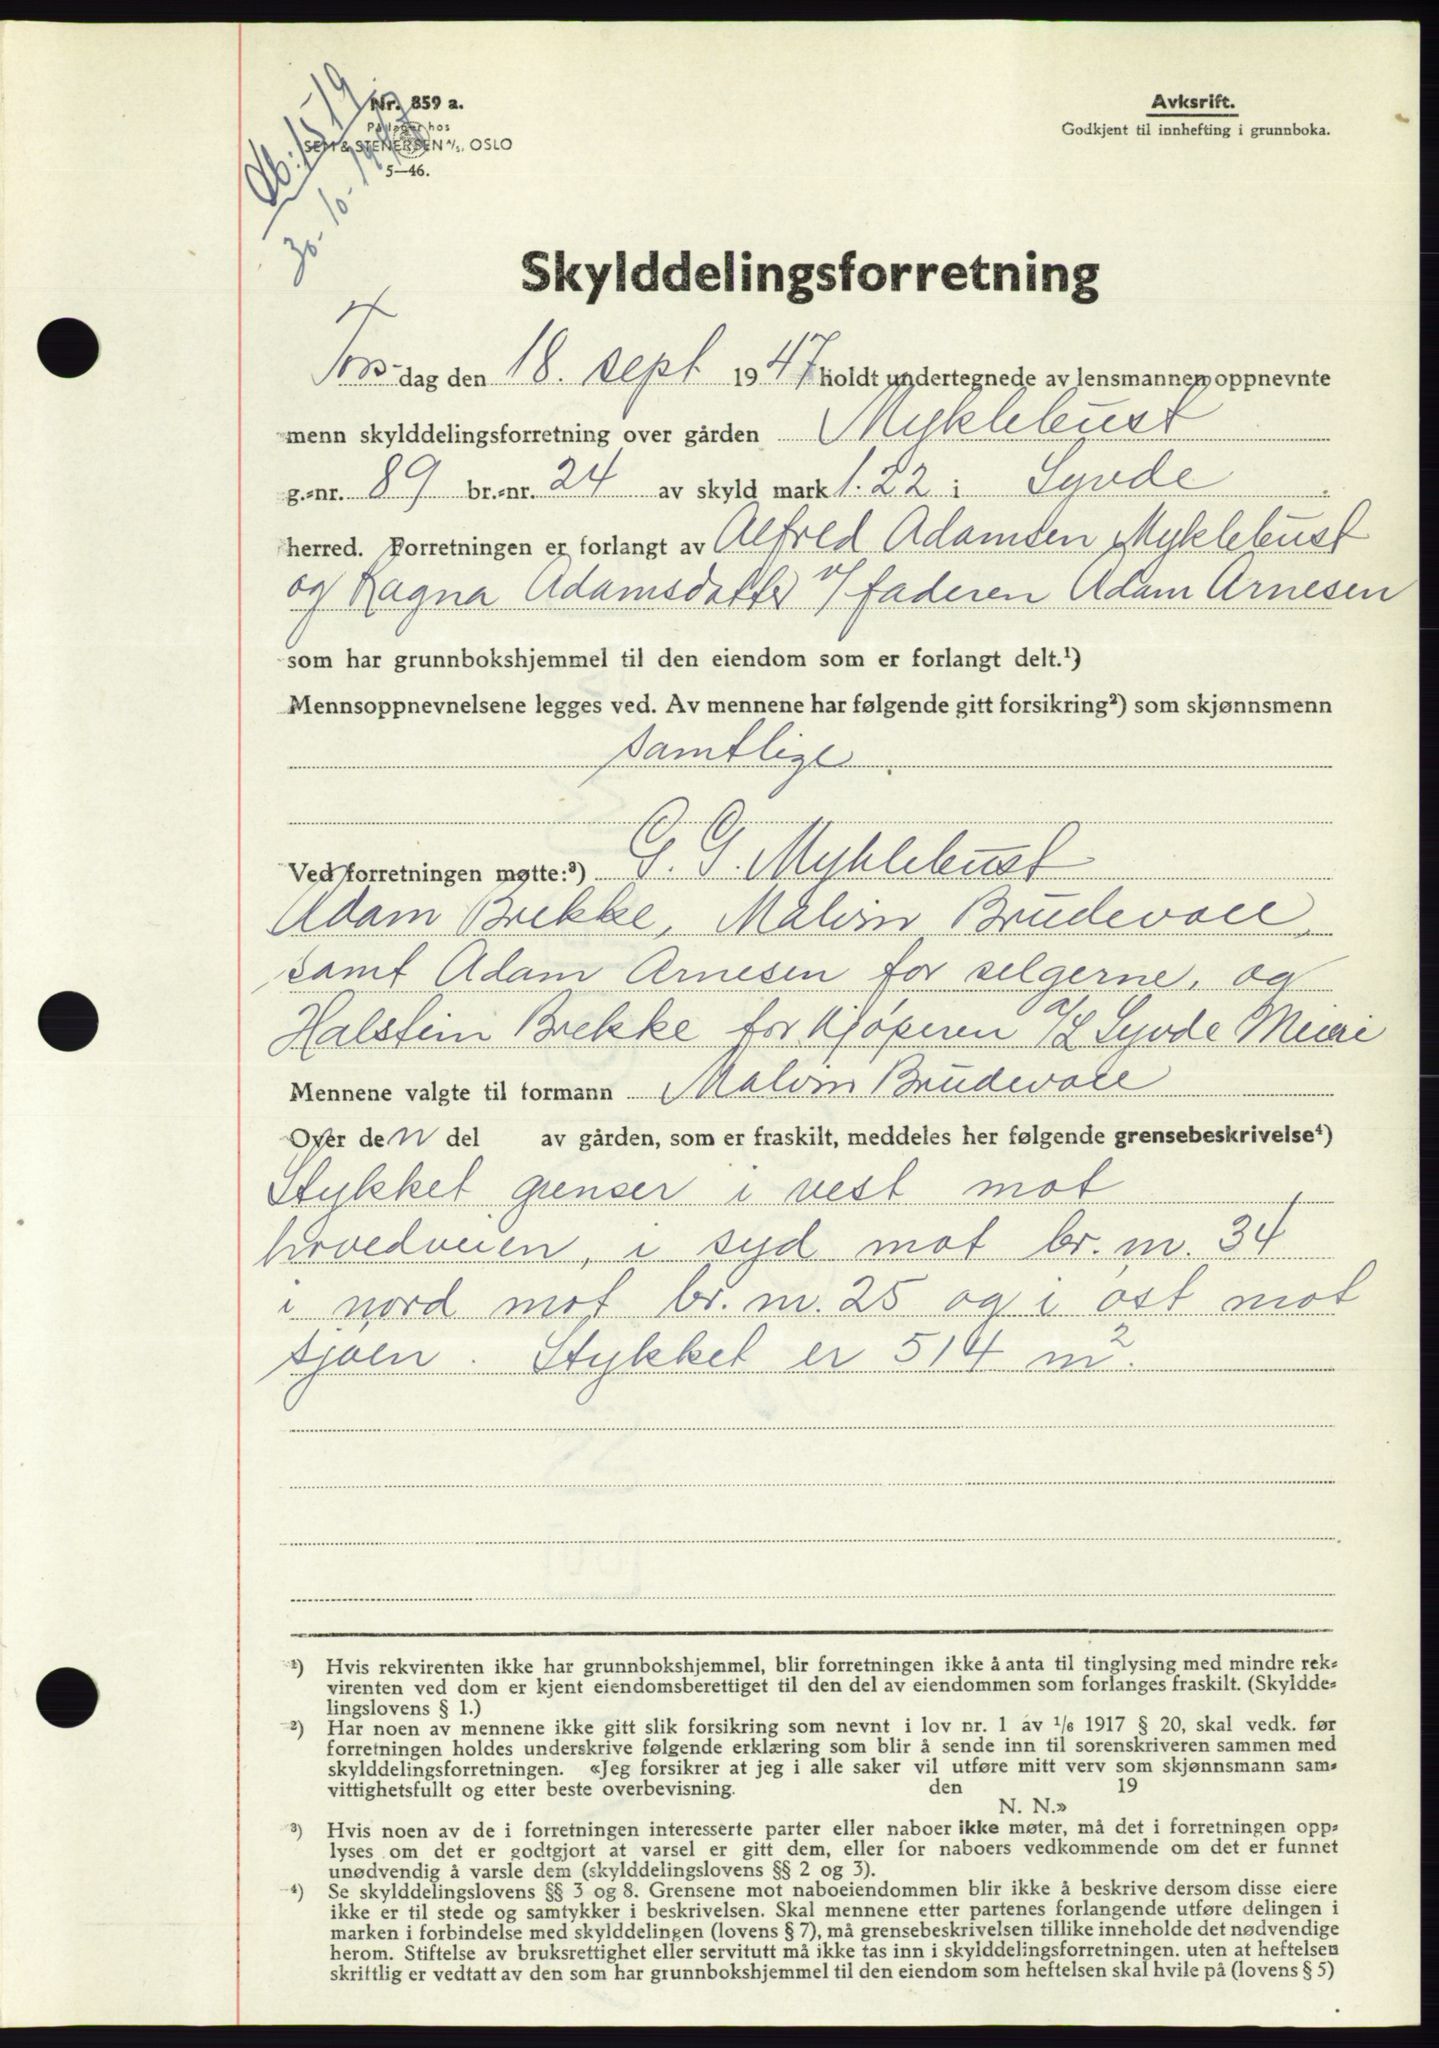 Nr. 859 a.
På lager hos
SEM & STENERSEN A/S, OSLO
5—46.
Db: 1519
30-10-1947
Avksrift.
Godkjent til innhefting i grunnboka.
Skylddelingsforretning
Torsdag den 18. sept 1947 holdt undertegnede av lensmannen oppnevnte
menn skylddelingsforretning over gården Myklebust
g.-nr. 89 br.-nr. 24 av skyld mark 1.22 i Syvde
herred. Forretningen er forlangt av Alfred Adamsen Myklebust
og Ragna Adamsdatter v/ faderen Adam Arnesen
som har grunnbokshjemmel til den eiendom som er forlangt delt.¹)
Mennsoppnevnelsene legges ved. Av mennene har følgende gitt forsikring²) som skjønnsmenn
samtlige
Ved forretningen møtte:³) G. G. Myklebust
Adam Brekke, Malvin Brudevoll,
samt Adam Arnesen for selgerne, og
Halstein Brekke for kjøperen A/L Syvde Meieri
Mennene valgte til formann Malvin Brudevoll
Over den del av gården, som er fraskilt, meddeles her følgende grensebeskrivelse⁴)
Stykket grenser i vest mot
hovedveien, i syd mot br. nr. 34
i nord mot br. nr. 25 og i øst mot
sjøen. Stykket er 514 m².
¹) Hvis rekvirenten ikke har grunnbokshjemmel, blir forretningen ikke å anta til tinglysing med mindre rek-
virenten ved dom er kjent eiendomsberettiget til den del av eiendommen som forlanges fraskilt. (Skyldde-
lingslovens § 1.)
²) Har noen av mennene ikke gitt slik forsikring som nevnt i lov nr. 1 av 1/6 1917 § 20, skal vedk. før
forretningen holdes underskrive følgende erklæring som blir å sende inn til sorenskriveren sammen med
skylddelingsforretningen. «Jeg forsikrer at jeg i alle saker vil utføre mitt verv som skjønnsmann sam-
vittighetsfullt og etter beste overbevisning. den 19
N. N.»
³) Hvis noen av de i forretningen interesserte parter eller naboer ikke møter, må det i forretningen opp-
lyses om det er godtgjort at varsel er gitt dem, eller for naboers vedkommende om det er funnet
unødvendig å varsle dem (skylddelingslovens §§ 2 og 3).
⁴) Se skylddelingslovens §§ 3 og 8. Grensene mot naboeiendommen blir ikke å beskrive dersom disse eiere
ikke er til stede og samtykker i beskrivelsen. Skal mennene etter partenes forlangende utføre delingen i
marken i forbindelse med skylddelingen (lovens § 7), må grensebeskrivelsen tillike inneholde det nødvendige
herom. Stiftelse av bruksrettighet eller servitutt må ikke tas inn i skylddelingsforretningen. uten at heftelsen
skriftlig er vedtatt av den som har grunnbokshjemmel til den eiendom som heftelsen skal hvile på (lovens § 5)